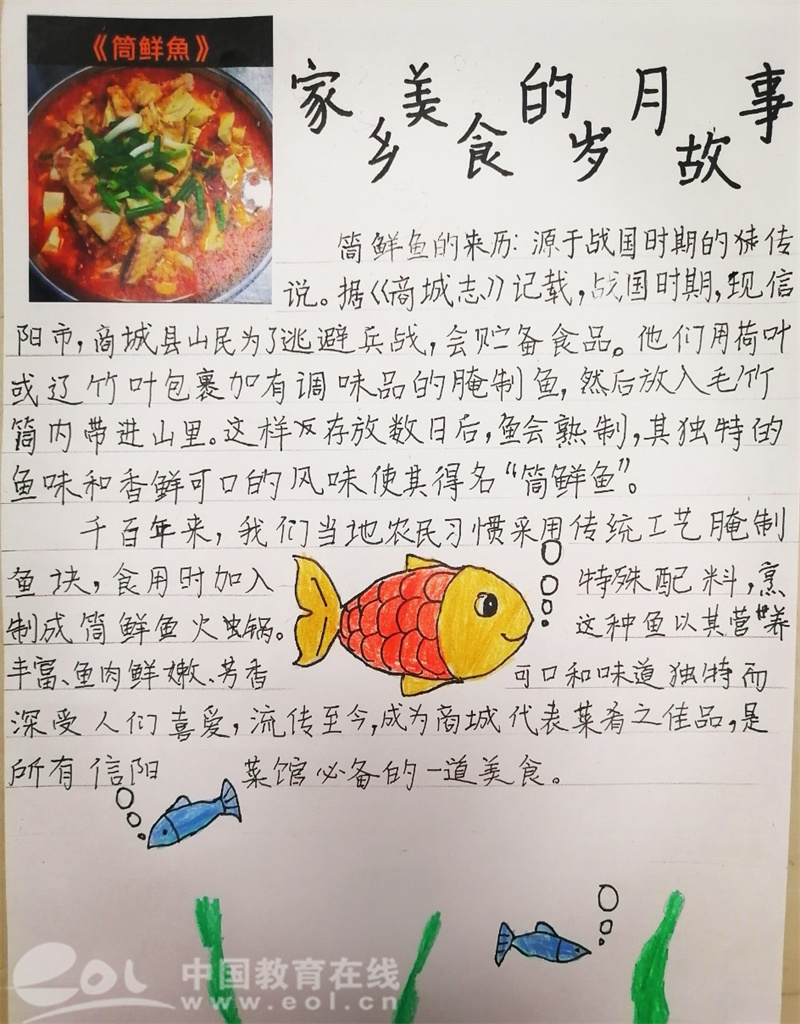 《筒鲜魚》
家乡美食的岁月故事
筒鲜鱼的来历：源于战国时期的
传
说。据《商城志》记载，战国时期，现信
阳市，商城县山民为了逃避兵战，会贮备食品。他们用荷叶
或辽竹叶包裹加有调味品的腌制鱼，然后放入毛竹
筒内带进山里。这样存放数日后，鱼会熟制，其独特的
鱼味和香鲜可口的风味使其得名“筒鲜鱼”。
千百年来，我们当地农民习惯采用传统工艺腌制
鱼块，食用时加入 特殊配料，烹
制成筒鲜鱼火锅。 这种鱼以其营养
丰富、鱼肉鲜嫩、芳香 可口和味道独特而
深受人们喜爱，流传至今，成为商城代表菜肴之佳品，是
所有信阳 菜馆必备的一道美食。
eol 中国教育在线
www.eol.cn